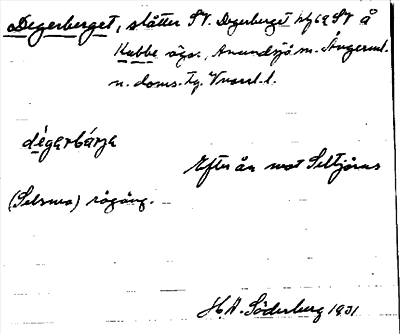 Degerberget, slåtter SV. Degerberget hfg 62 SV å
Kubbe ägor, Anundsjö sn. Ångerml.
n. doms. tg. Vnorrl. l.
dégarbárja
Efter ån mot Seltjärns
(Selsmo) rågång.
H.A. Söderberg 1931